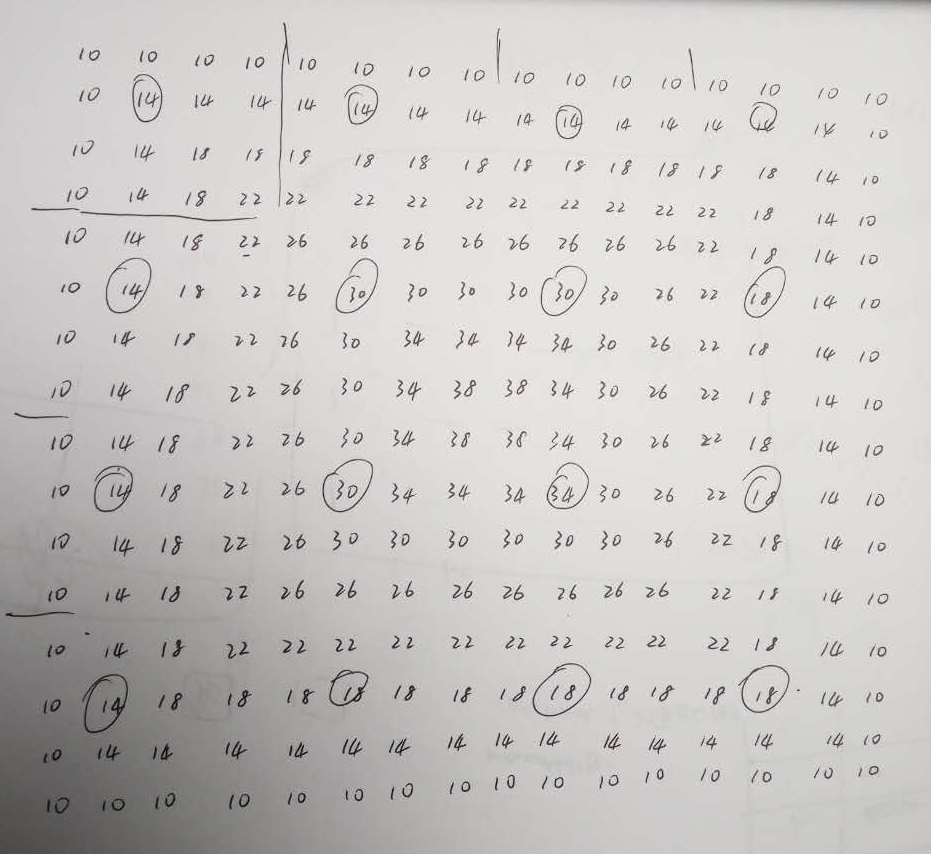 10 10 10 10 10 10 10 10 10 10 10 10 10 10 10 10
10 14 14 14 14 14 14 14 14 14 14 14 14 14 14 10
10 14 18 18 18 18 18 18 18 18 18 18 18 18 14 10
10 14 18 22 22 22 22 22 22 22 22 22 22 18 14 10
10 14 18 22 26 26 26 26 26 26 26 26 22 18 14 10
10 14 18 22 26 30 30 30 30 30 30 26 22 18 14 10
10 14 18 22 26 30 34 34 34 34 30 26 22 18 14 10
10 14 18 22 26 30 34 38 38 34 30 26 22 18 14 10
10 14 18 22 26 30 34 38 38 34 30 26 22 18 14 10
10 14 18 22 26 30 34 34 34 34 30 26 22 18 14 10
10 14 18 22 26 30 30 30 30 30 30 26 22 18 14 10
10 14 18 22 26 26 26 26 26 26 26 26 22 18 14 10
10 14 18 22 22 22 22 22 22 22 22 22 22 18 14 10
10 14 18 18 18 18 18 18 18 18 18 18 18 18 14 10
10 14 14 14 14 14 14 14 14 14 14 14 14 14 14 10
10 10 10 10 10 10 10 10 10 10 10 10 10 10 10 10